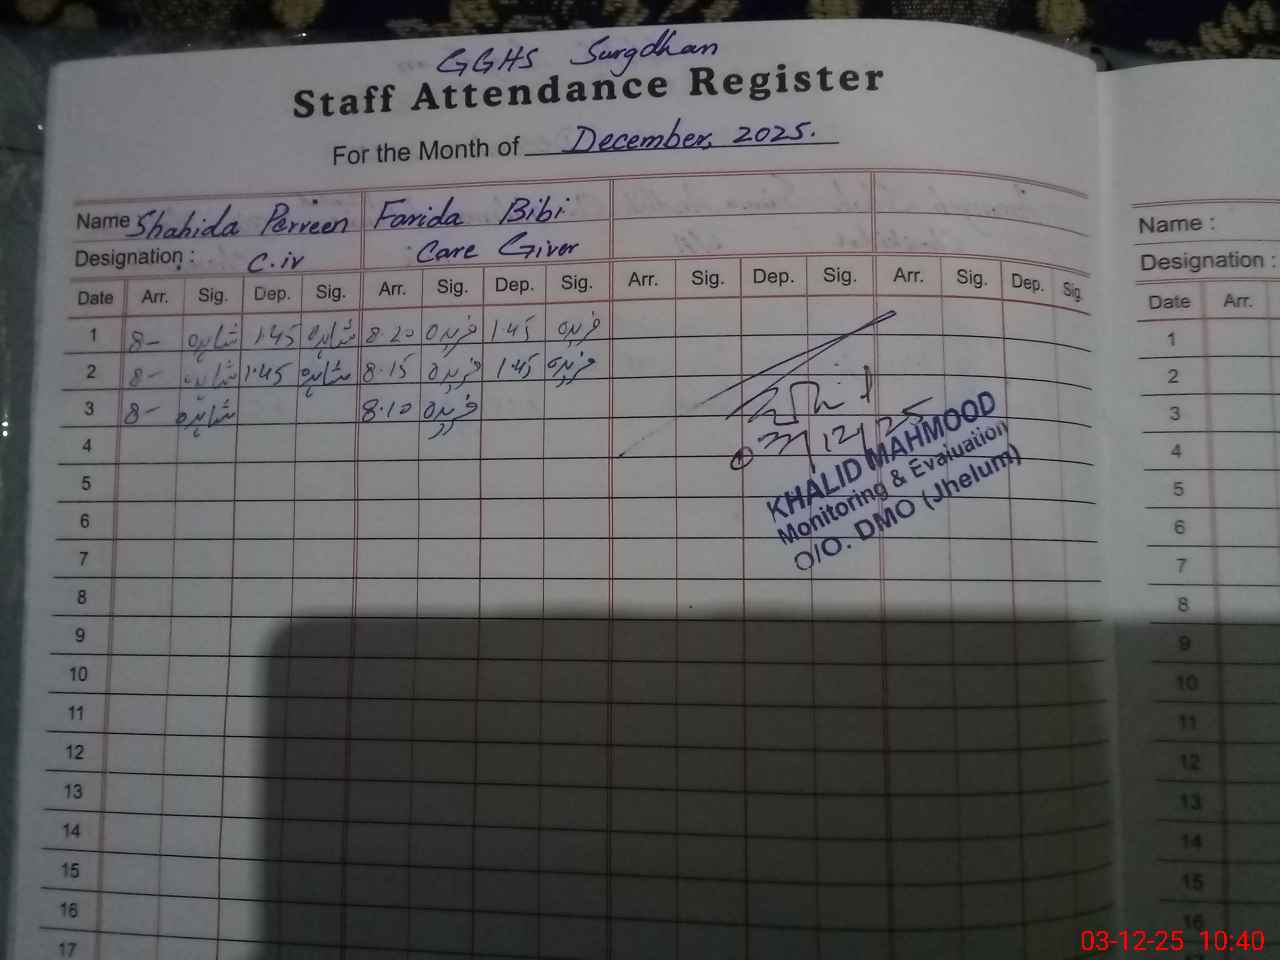 GGHS Surgdhan
Staff Attendance Register
For the Month of December, 2025.
Name Shahida Perveen Farida Bibi
Designation : C.iv Care Giver
Date Arr. Sig. Dep. Sig. Arr. Sig. Dep. Sig. Arr. Sig. Dep. Sig. Arr. Sig. Dep. Sig.
1 8- شاہدہ 1.45 شاہدہ 8.20 فریدہ 1.45 فریدہ
2 8- شاہدہ 1.45 شاہدہ 8.15 فریدہ 1.45 فریدہ
3 8- شاہدہ 8.10 فریدہ
4
5
6
7
8
9
10
11
12
13
14
15
16
17
03/12/25
KHALID MAHMOOD
Monitoring & Evaluation
O/O. DMO (Jhelum)
Name :
Designation :
Date Arr.
1
2
3
4
5
6
7
8
9
10
11
12
13
14
15
16
03-12-25 10:40